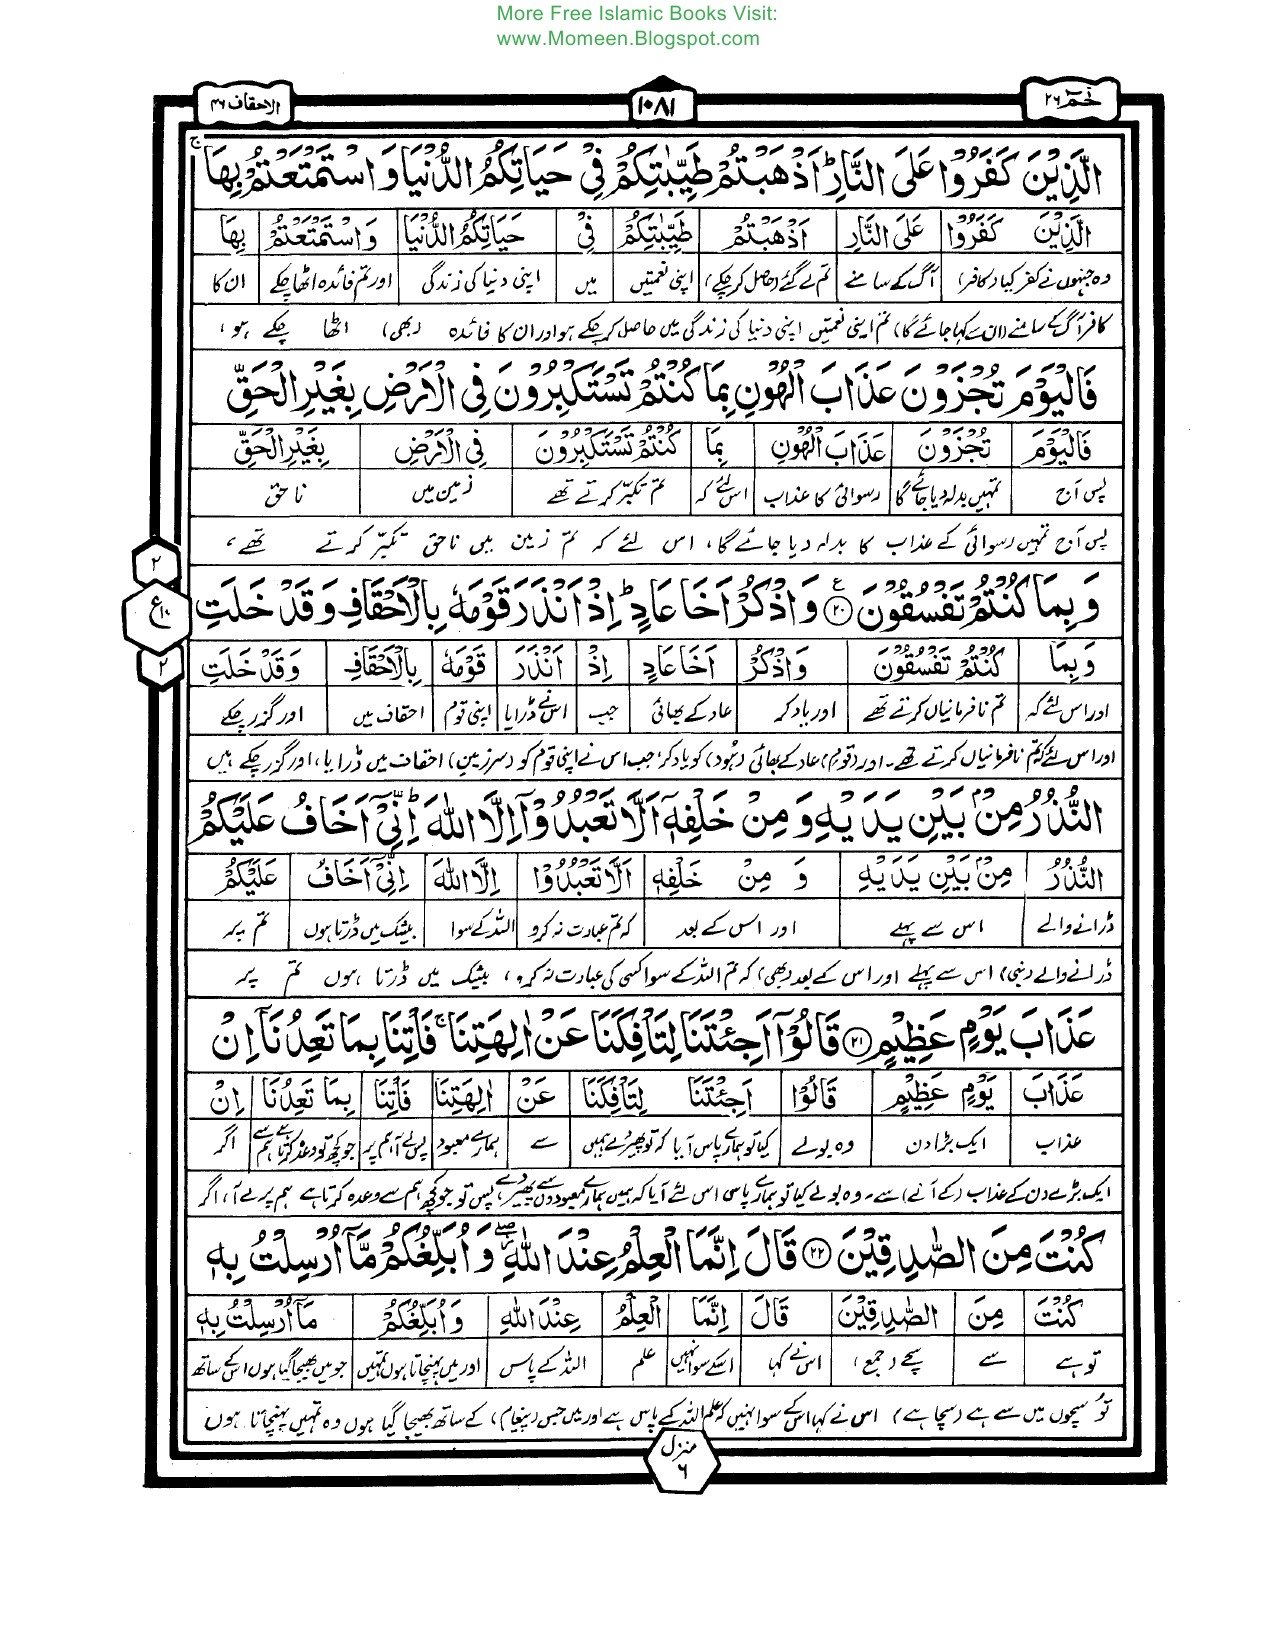 More Free Islamic Books Visit:
www.Momeen.Blogspot.com
حٰمٓ ۲۶
۱۰۸۱
الاحقاف ۴۶
الَّذِيْنَ كَفَرُوْا عَلَى النَّارِ ؕ اَذْهَبْتُمْ طَيِّبٰتِكُمْ فِيْ حَيَاتِكُمُ الدُّنْيَا وَاسْتَمْتَعْتُمْ بِهَا ۚ
الَّذِيْنَ كَفَرُوْا عَلَى النَّارِ اَذْهَبْتُمْ طَيِّبٰتِكُمْ فِيْ حَيَاتِكُمُ الدُّنْيَا وَاسْتَمْتَعْتُمْ بِهَا
وہ جنہوں نے کفر کیا (کافر) آگ کے سامنے تم لے گئے (حاصل کر چکے) اپنی نعمتیں میں اپنی دنیا کی زندگی اور تم فائدہ اٹھا چکے ان کا
کافر آگ کے سامنے (ان سے کہا جائے گا) تم اپنی نعمتیں اپنی دنیا کی زندگی میں حاصل کر چکے ہو اور ان کا فائدہ (بھی) اٹھا چکے ہو،
فَالْيَوْمَ تُجْزَوْنَ عَذَابَ الْهُوْنِ بِمَا كُنْتُمْ تَسْتَكْبِرُوْنَ فِي الْاَرْضِ بِغَيْرِ الْحَقِّ
فَالْيَوْمَ تُجْزَوْنَ عَذَابَ الْهُوْنِ بِمَا كُنْتُمْ تَسْتَكْبِرُوْنَ فِي الْاَرْضِ بِغَيْرِ الْحَقِّ
پس آج تمہیں بدلہ دیا جائے گا رسوائی کا عذاب اس لئے کہ تم تکبّر کرتے تھے زمین میں نا حق
پس آج تمہیں رسوائی کے عذاب کا بدلہ دیا جائے گا، اس لئے کہ تم زمین میں ناحق تکبّر کرتے تھے،
۲
ع ۱۰
۲
وَبِمَا كُنْتُمْ تَفْسُقُوْنَ ۲۰ ع وَاذْكُرْ اَخَا عَادٍ ؕ اِذْ اَنْذَرَ قَوْمَهٗ بِالْاَحْقَافِ وَقَدْ خَلَتِ
وَبِمَا كُنْتُمْ تَفْسُقُوْنَ وَاذْكُرْ اَخَا عَادٍ اِذْ اَنْذَرَ قَوْمَهٗ بِالْاَحْقَافِ وَقَدْ خَلَتِ
اور اس لئے کہ تم نافرمانیاں کرتے تھے اور یاد کر عاد کے بھائی جب اس نے ڈرایا اپنی قوم احقاف میں اور گزر چکے
اور اس لئے کہ تم نافرمانیاں کرتے تھے۔ اور (قوم) عاد کے بھائی (ہُود) کو یاد کر جب اس نے اپنی قوم کو (سرزمینِ) احقاف میں ڈرایا، اور گزر چکے ہیں
النُّذُرُ مِنْۢ بَيْنِ يَدَيْهِ وَمِنْ خَلْفِهٖٓ اَلَّا تَعْبُدُوْٓا اِلَّا اللّٰهَ ؕ اِنِّيْٓ اَخَافُ عَلَيْكُمْ
النُّذُرُ مِنْۢ بَيْنِ يَدَيْهِ وَ مِنْ خَلْفِهٖ اَلَّا تَعْبُدُوْا اِلَّا اللّٰهَ اِنِّيْٓ اَخَافُ عَلَيْكُمْ
ڈرانے والے اس سے پہلے اور اس کے بعد کہ تم عبادت نہ کرو اللہ کے سوا بیشک میں ڈرتا ہوں تم پر
ڈرانے والے (نبی) اس سے پہلے اور اس کے بعد (بھی) کہ تم اللہ کے سوا کسی کی عبادت نہ کرو، بیشک میں ڈرتا ہوں تم پر
عَذَابَ يَوْمٍ عَظِيْمٍ ۲۱ قَالُوْٓا اَجِئْتَنَا لِتَاْفِكَنَا عَنْ اٰلِهَتِنَا ۚ فَاْتِنَا بِمَا تَعِدُنَآ اِنْ
عَذَابَ يَوْمٍ عَظِيْمٍ قَالُوْا اَجِئْتَنَا لِتَاْفِكَنَا عَنْ اٰلِهَتِنَا فَاْتِنَا بِمَا تَعِدُنَا اِنْ
عذاب ایک بڑا دن وہ بولے کیا تو ہمارے پاس آیا کہ تو پھیر دے ہمیں سے ہمارے معبود پس لے آ ہم پر جو کچھ تو وعدہ کرتا ہے ہم سے اگر
ایک بڑے دن کے عذاب (کے آنے) سے۔ وہ بولے کیا تو ہمارے پاس اس لئے آیا کہ ہمیں ہمارے معبودوں سے پھیر دے، پس تو جو کچھ ہم سے وعدہ کرتا ہے ہم پر لے آ، اگر
كُنْتَ مِنَ الصّٰدِقِيْنَ ۲۲ قَالَ اِنَّمَا الْعِلْمُ عِنْدَ اللّٰهِ ۖ وَاُبَلِّغُكُمْ مَّآ اُرْسِلْتُ بِهٖ
كُنْتَ مِنَ الصّٰدِقِيْنَ قَالَ اِنَّمَا الْعِلْمُ عِنْدَ اللّٰهِ وَاُبَلِّغُكُمْ مَآ اُرْسِلْتُ بِهٖ
تو ہے سے سچے (جمع) اس نے کہا اسکے سوا نہیں علم اللہ کے پاس اور میں پہنچاتا ہوں تمہیں جو میں بھیجا گیا ہوں اس کے ساتھ
تو سچوں میں سے ہے (سچا ہے) اس نے کہا اس کے سوا نہیں کہ علم اللہ کے پاس ہے اور میں جس (پیغام) کے ساتھ بھیجا گیا ہوں وہ تمہیں پہنچاتا ہوں
منزل ۶